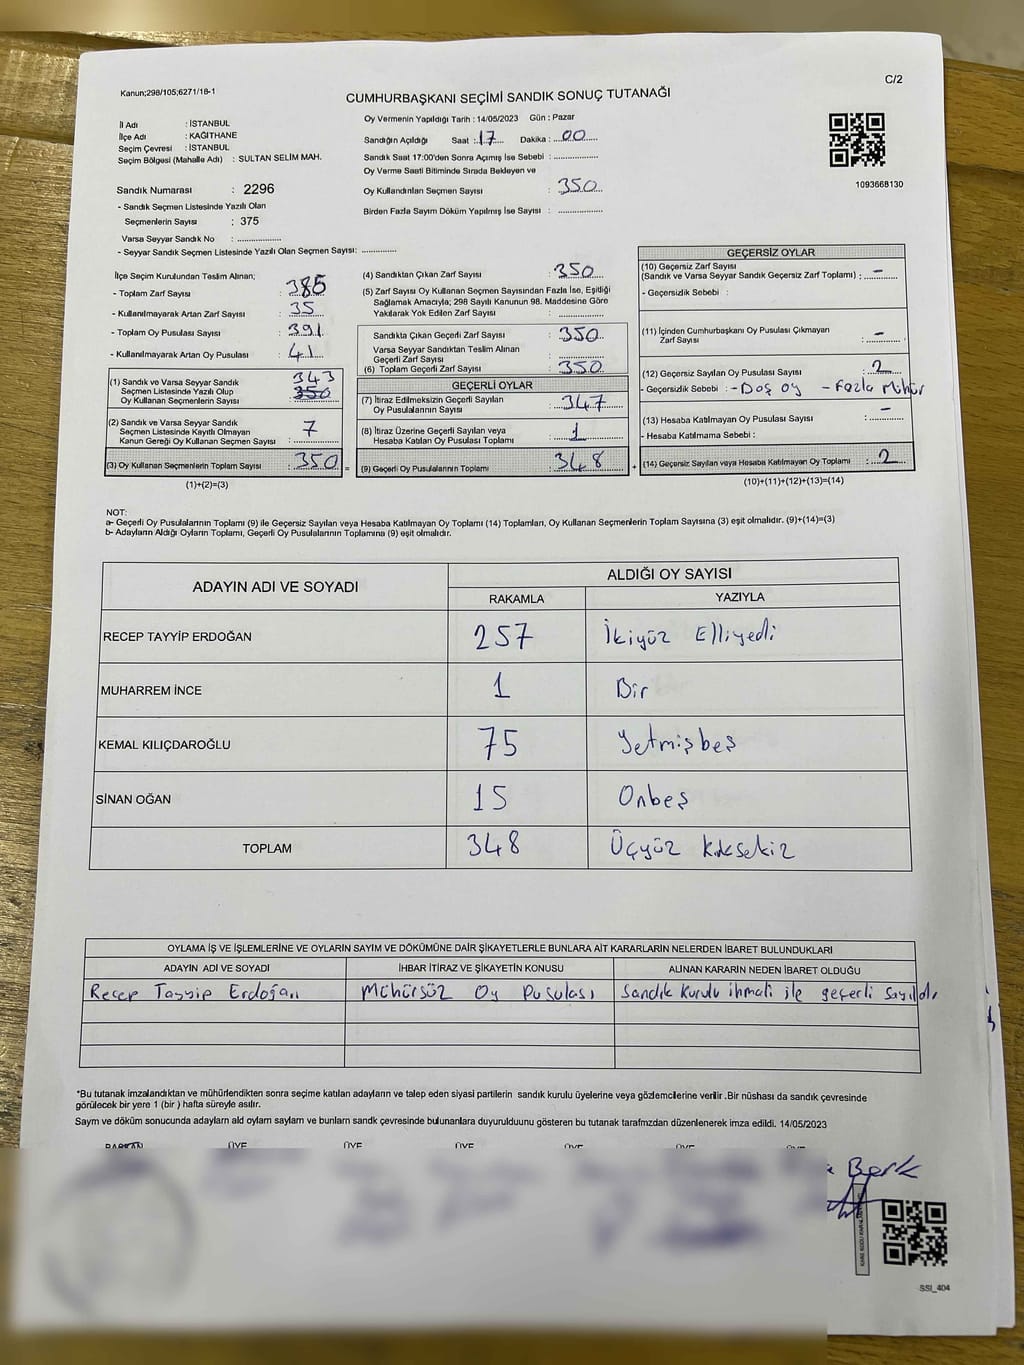 C/2
Kanun;298/105;6271/18-1
CUMHURBAŞKANI SEÇİMİ SANDIK SONUÇ TUTANAĞI
İl Adı : İSTANBUL
İlçe Adı : KAĞITHANE
Seçim Çevresi : İSTANBUL
Seçim Bölgesi (Mahalle Adı) : SULTAN SELİM MAH.
Sandık Numarası : 2296
- Sandık Seçmen Listesinde Yazılı Olan
Seçmenlerin Sayısı : 375
Varsa Seyyar Sandık No : ..............
- Seyyar Sandık Seçmen Listesinde Yazılı Olan Seçmen Sayısı: ...........
Oy Vermenin Yapıldığı Tarih : 14/05/2023 Gün : Pazar
Sandığın Açıldığı Saat : 17 Dakika : 00
Sandık Saat 17:00'den Sonra Açımış İse Sebebi : ..............
Oy Verme Saati Bitiminde Sırada Bekleyen ve
Oy Kullandırılan Seçmen Sayısı : 350
Birden Fazla Sayım Döküm Yapılmış İse Sayısı : ..............
1093668130
İlçe Seçim Kurulundan Teslim Alınan;
- Toplam Zarf Sayısı : 385
- Kullanılmayarak Artan Zarf Sayısı : 35
- Toplam Oy Pusulası Sayısı : 391
- Kullanılmayarak Artan Oy Pusulası : 41
(1) Sandık ve Varsa Seyyar Sandık 343
Seçmen Listesinde Yazılı Olup 350
Oy Kullanan Seçmenlerin Sayısı :
(2) Sandık ve Varsa Seyyar Sandık
Seçmen Listesinde Kayıtlı Olmayan 7
Kanun Gereği Oy Kullanan Seçmen Sayısı :
(3) Oy Kullanan Seçmenlerin Toplam Sayısı : 350 =
(1)+(2)=(3)
(4) Sandıktan Çıkan Zarf Sayısı : 350
(5) Zarf Sayısı Oy Kullanan Seçmen Sayısından Fazla İse, Eşitliği
Sağlamak Amacıyla; 298 Sayılı Kanunun 98. Maddesine Göre
Yakılarak Yok Edilen Zarf Sayısı : ..............
Sandıkta Çıkan Geçerli Zarf Sayısı : 350
Varsa Seyyar Sandıktan Teslim Alınan
Geçerli Zarf Sayısı : ..............
(6) Toplam Geçerli Zarf Sayısı : 350
GEÇERLİ OYLAR
(7) İtiraz Edilmeksizin Geçerli Sayılan
Oy Pusulalarının Sayısı : 347
(8) İtiraz Üzerine Geçerli Sayılan veya
Hesaba Katılan Oy Pusulası Toplamı : 1
(9) Geçerli Oy Pusulalarının Toplamı : 348 +
GEÇERSİZ OYLAR
(10) Geçersiz Zarf Sayısı
(Sandık ve Varsa Seyyar Sandık Geçersiz Zarf Toplamı) : -
- Geçersizlik Sebebi :
(11) İçinden Cumhurbaşkanı Oy Pusulası Çıkmayan
Zarf Sayısı : -
(12) Geçersiz Sayılan Oy Pusulası Sayısı : 2
- Geçersizlik Sebebi : - Boş oy - Fazla Mühür
(13) Hesaba Katılmayan Oy Pusulası Sayısı : -
- Hesaba Katılmama Sebebi :
(14) Geçersiz Sayılan veya Hesaba Katılmayan Oy Toplamı : 2
(10)+(11)+(12)+(13)=(14)
NOT:
a- Geçerli Oy Pusulalarının Toplamı (9) ile Geçersiz Sayılan veya Hesaba Katılmayan Oy Toplamı (14) Toplamları, Oy Kullanan Seçmenlerin Toplam Sayısına (3) eşit olmalıdır. (9)+(14)=(3)
b- Adayların Aldığı Oyların Toplamı, Geçerli Oy Pusulalarının Toplamına (9) eşit olmalıdır.
ADAYIN ADI VE SOYADI ALDIĞI OY SAYISI
RAKAMLA YAZIYLA
RECEP TAYYİP ERDOĞAN 257 İkiyüz Elliyedi
MUHARREM İNCE 1 Bir
KEMAL KILIÇDAROĞLU 75 Yetmişbeş
SİNAN OĞAN 15 Onbeş
TOPLAM 348 Üçyüz kırksekiz
OYLAMA İŞ VE İŞLEMLERİNE VE OYLARIN SAYIM VE DÖKÜMÜNE DAİR ŞİKAYETLERLE BUNLARA AİT KARARLARIN NELERDEN İBARET BULUNDUKLARI
ADAYIN ADI VE SOYADI İHBAR İTİRAZ VE ŞİKAYETİN KONUSU ALINAN KARARIN NEDEN İBARET OLDUĞU
Recep Tayyip Erdoğan Mühürsüz Oy Pusulası Sandık Kurulu ihmali ile geçerli sayıldı.
*Bu tutanak imzalandıktan ve mühürlendikten sonra seçime katılan adayların ve talep eden siyasi partilerin sandık kurulu üyelerine veya gözlemcilerine verilir .Bir nüshası da sandık çevresinde
görülecek bir yere 1 (bir ) hafta süreyle asılır.
Sayım ve döküm sonucunda adayların ald oyların sayları ve bunların sandk çevresinde bulunanlara duyurulduunu gösteren bu tutanak tarafmzdan düzenlenerek imza edildi. 14/05/2023
BAŞKAN ÜYE ÜYE ÜYE ÜYE ÜYE ÜYE
Berk
SSI_404